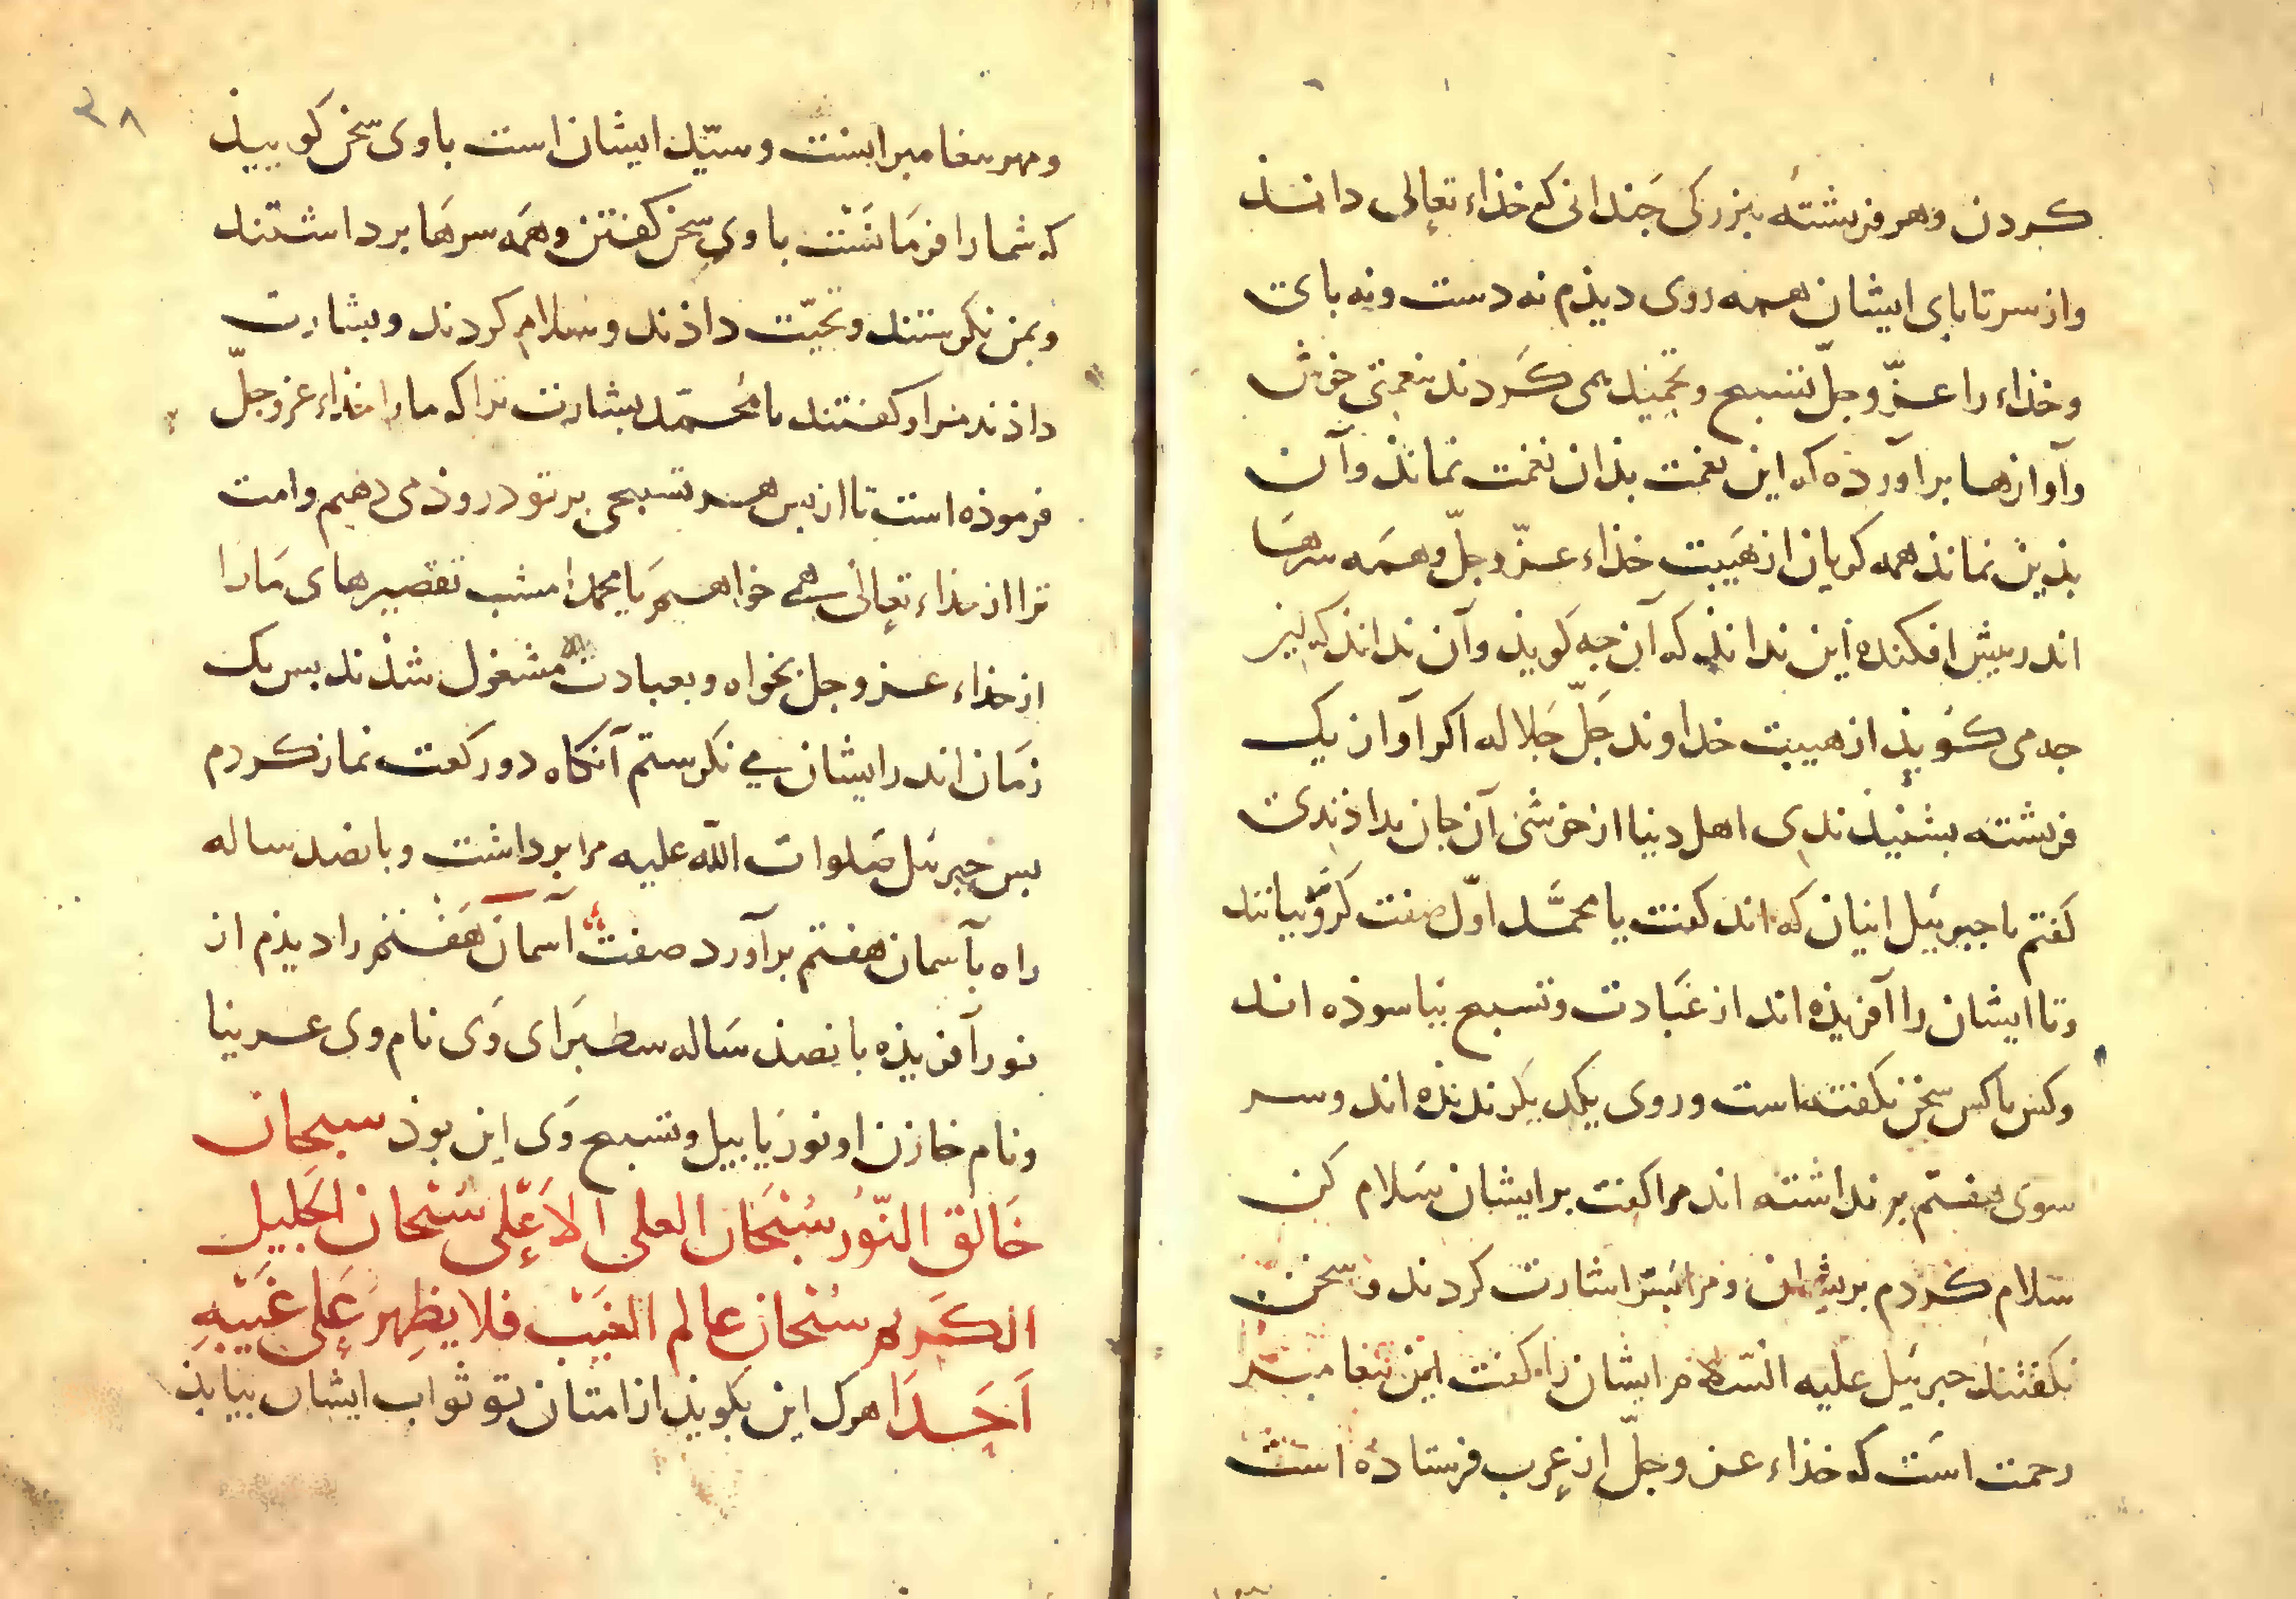 کردن و هر فریشتهٔ بزرکی جندانی که خذاء تعالی داند
واز سر تا بای ایشان همه روی دیذم نه دست و نه بای
وخذاء را عزّ وجلّ تسبیح وتحمید می کردند بنغمتی خوش
وآوازها برآورده که این نغمت بذان نغمت نماند وآن
بذین نماند همه کریان از هیبت خذاء عزّ وجلّ وهمه سرها
اندر بیش افکنده این نداند که آن جه کوید وآن نداند که این
جه می کوید از هیبت خداوند جلّ جلاله اکر آواز یک
فریشته بشنیدندی اهل دنیا از خوشی آن جان بداذندی
کفتم یا جبریل اینان که اند کفت یا محمّد اوّل صفت کرّوبیانند
وتا ایشان را آفریذه اند از عبادت وتسبیح نیاسوذه اند
وکس با کس سخن نکفته است وروی یکدیکر ندیذه اند وسر
سوی هفتم بر نداشته اند مرا کفت بر ایشان سلام کن
سلام کردم بریشان ومرا بسر اشارت کردند وسخن
نکفتند جبریل علیه السّلم مر ایشان را کفت این بیغامبر
رحمت است که خذاء عز وجلّ از عرب فرستاده است
۳۸
ومهر بیغامبرانست وسیّد ایشان است با وی سخن کویید
که شما را فرمانست با وی سخن کفتن وهمه سرها برداشتند
وبمن نکرستند وتحیّت داذند وسلام کردند وبشارت
داذند مرا وکفتند یا محمّد بشارت ترا که ما را خذاء عز وجلّ
فرموذه است تا از بس هر تسبیحی بر تو دروذ می دهیم وامت
ترا از خذاء تعالی همی خواهیم یا محمد امشب تقصیرهای ما را
از خذاء عز وجل بخواه وبعبادت مشغول شذند بس یک
زمان اندر ایشان می نکرستم آنکاه دو رکعت نماز کردم
بس جبریل صلوات الله علیه مرا برداشت وبانصد ساله
راه بآسمان هفتم برآورد صفت آسمان هفتم را دیذم از
نور آفریذه بانصد ساله سطبرای وی نام وی عرینا
ونام خازن او نوریاییل وتسبیح وی این بوذ سبحان
خالق النّور سبحان العلی الاعلی سبحان الجلیل
الکریم سبحان عالم الغیب فلا یظهر علی غیبه
احدا هرک این بکوید از امتان تو ثواب ایشان بیابذ